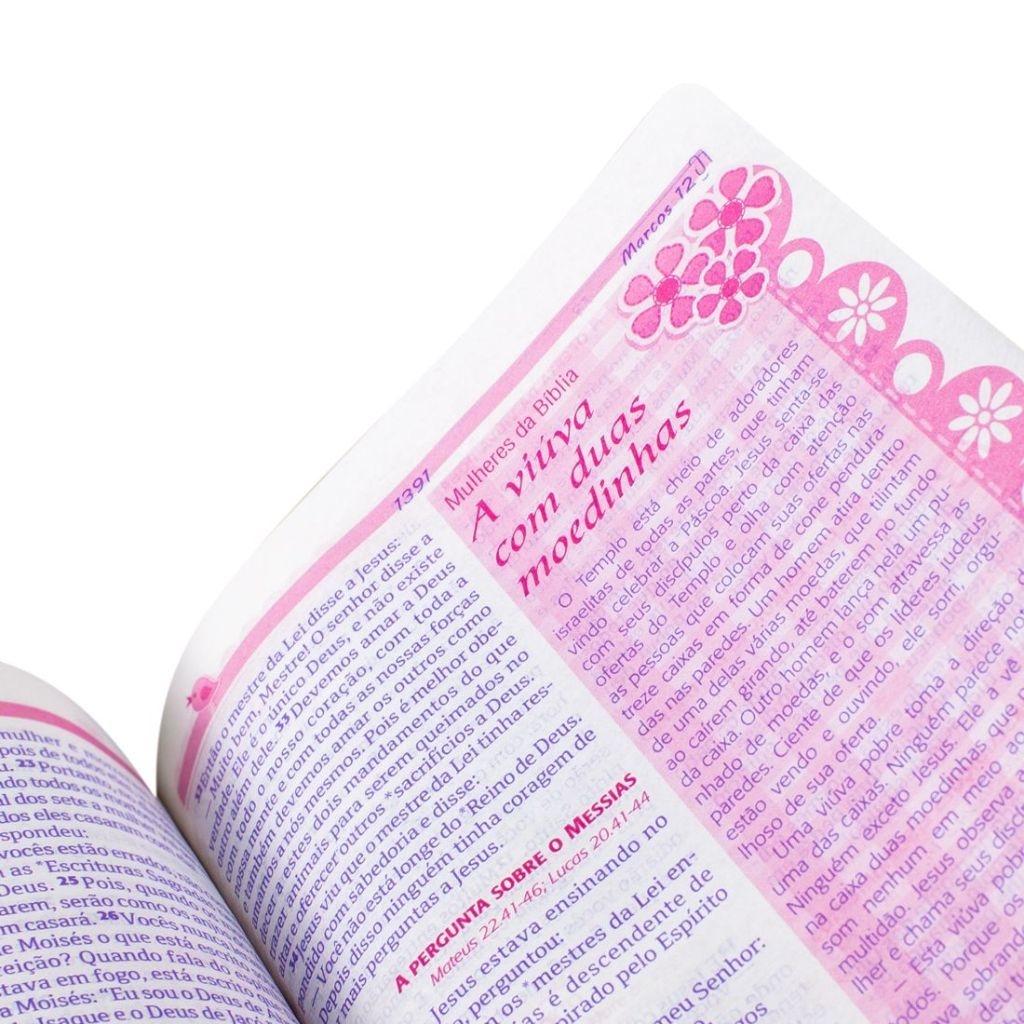 mulher e
pois de todos
23 Portanto
ndo todos os mortos
al dos sete a
dos eles casaram com
spondeu:
vocês estão errados,
as *Escrituras Sagradas
Deus. 25 Pois, quando
arem, serão como os anjos
m casará. 26 Vocês nunca
e Moisés o que está escrito
eição? Quando fala do
tava em fogo, está escrito
a Moisés: "Eu sou o Deus de
Isaque e o Deus de Jacó
1391
Marcos 12
32 Então o mestre da Lei disse a Jesus:
— Muito bem, Mestre! O senhor disse a
verdade. Ele é o único Deus, e não existe
outro além dele. 33 Devemos amar a Deus
com todo o nosso coração, com toda a
nossa mente e com todas as nossas forças
e também devemos amar os outros como
amamos a nós mesmos. Pois é melhor obe-
decer a estes dois mandamentos do que
trazer animais para serem queimados no
altar e oferecer outros *sacrifícios a Deus.
34 Jesus viu que o mestre da Lei tinha res-
pondido com sabedoria e disse:
— Você não está longe do *Reino de Deus.
Depois disso ninguém tinha coragem de
fazer mais perguntas a Jesus.
A PERGUNTA SOBRE O MESSIAS
Mateus 22.41-46; Lucas 20.41-44
Jesus estava ensinando no
o, perguntou:
m os *mestres da Lei en-
as é descendente de
pirado pelo Espírito
meu Senhor:
Mulheres da Bíblia
A viúva
com duas
moedinhas
O Templo está cheio de adoradores
israelitas de todas as partes, que tinham
vindo celebrar a Páscoa. Jesus senta-se
com seus discípulos perto da caixa das
ofertas do Templo e olha com atenção
as pessoas que colocam suas ofertas nas
treze caixas em forma de cone pendura-
das nas paredes. Um homem atira dentro
de uma delas várias moedas, que tilintam
ao caírem, girando, até baterem no fundo
da caixa. Outro homem lança nela um pu-
nhado de moedas, e o som atravessa as
paredes. Ciente de que os líderes judeus
estão vendo e ouvindo, ele sorri, orgu-
lhoso de sua oferta.
Uma viúva pobre toma a direção
das caixas. Ninguém parece
Ninguém, exceto Jesus. Ele a vê
na caixa duas moedinhas que
nenhum som em meio ao
multidão. Jesus observa a
lher e chama seus
— Esta viúva pobre
odos. Porque
sobrando
deu